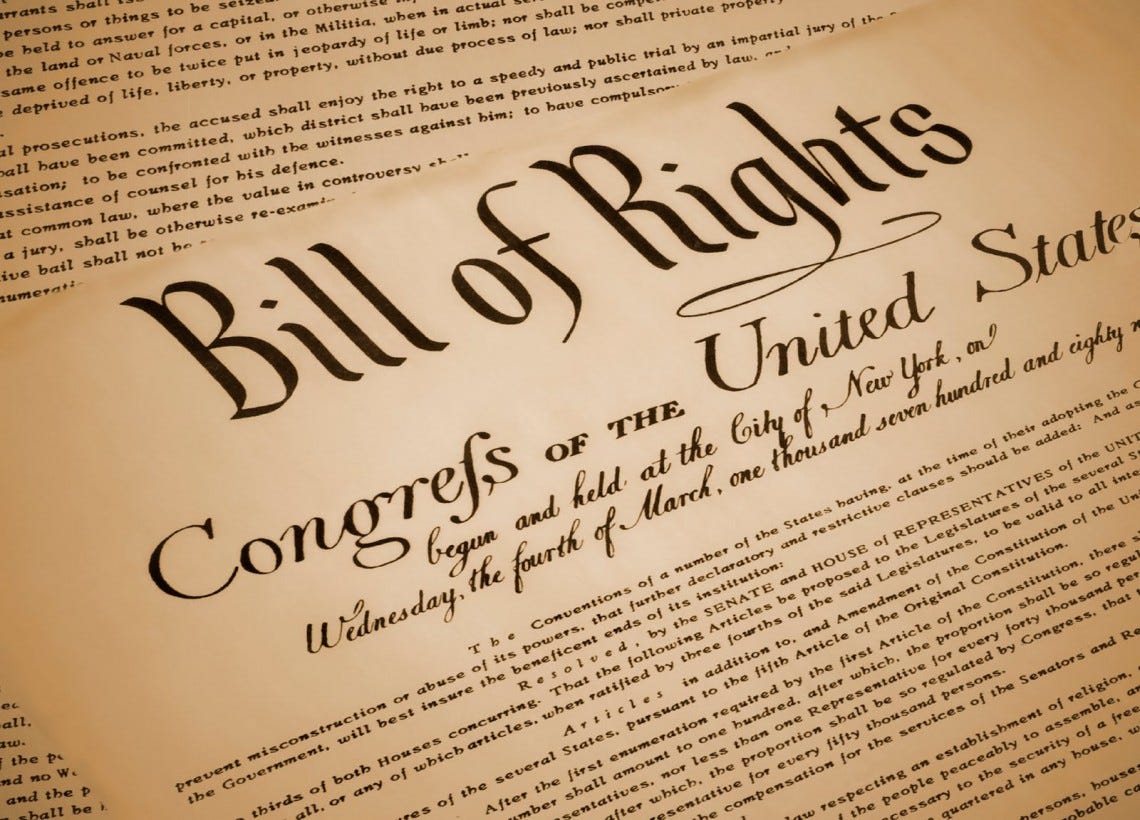 persons or things to be
be held to answer for a capital, or otherwise
the land or Naval forces, or in the Militia, when in actual
same offence to be twice put in jeopardy of life or limb; nor shall be
deprived of life, liberty, or property, without due process of law; nor shall private property
prosecutions, the accused shall enjoy the right to a speedy and public trial by an impartial jury of the
shall have been committed, which district shall have been previously ascertained by law,
to be confronted with the witnesses against him; to have
assistance of counsel for his defence.
at common law, where the value in controversy
a jury, shall be otherwise
bail shall not be
Bill of Rights
Congreſs OF THE United States
begun and held at the City of New York, on
Wednesday, the fourth of March, one thousand seven hundred and eighty
The Conventions of a number of the States having, at the time of their adopting the
prevent misconstruction or abuse of its powers, that further declaratory and restrictive clauses should be added: And as
the Government, will best insure the beneficent ends of its institution:
Resolved, by the SENATE and HOUSE of REPRESENTATIVES of the
thirds of both Houses concurring. That the following Articles be proposed to the Legislatures of the several
all, or any of which articles, when ratified by three fourths of the said Legislatures, to be valid to all
Articles in addition to, and Amendment of the Constitution of the
of the several States, pursuant to the fifth Article of the Original Constitution.
After the first enumeration required by the first Article of the Constitution, there
shall amount to one hundred, after which, the proportion shall be so
nor less than one Representative for every forty thousand
after which, the proportion shall be so regulated by Congress, that
for every fifty thousand persons.
compensation for the services of the Senators and
law respecting an establishment of religion,
of the people peaceably to assemble, and
to the security of a free
quartered in any house,
persons,
of the
and no
and the
shall be